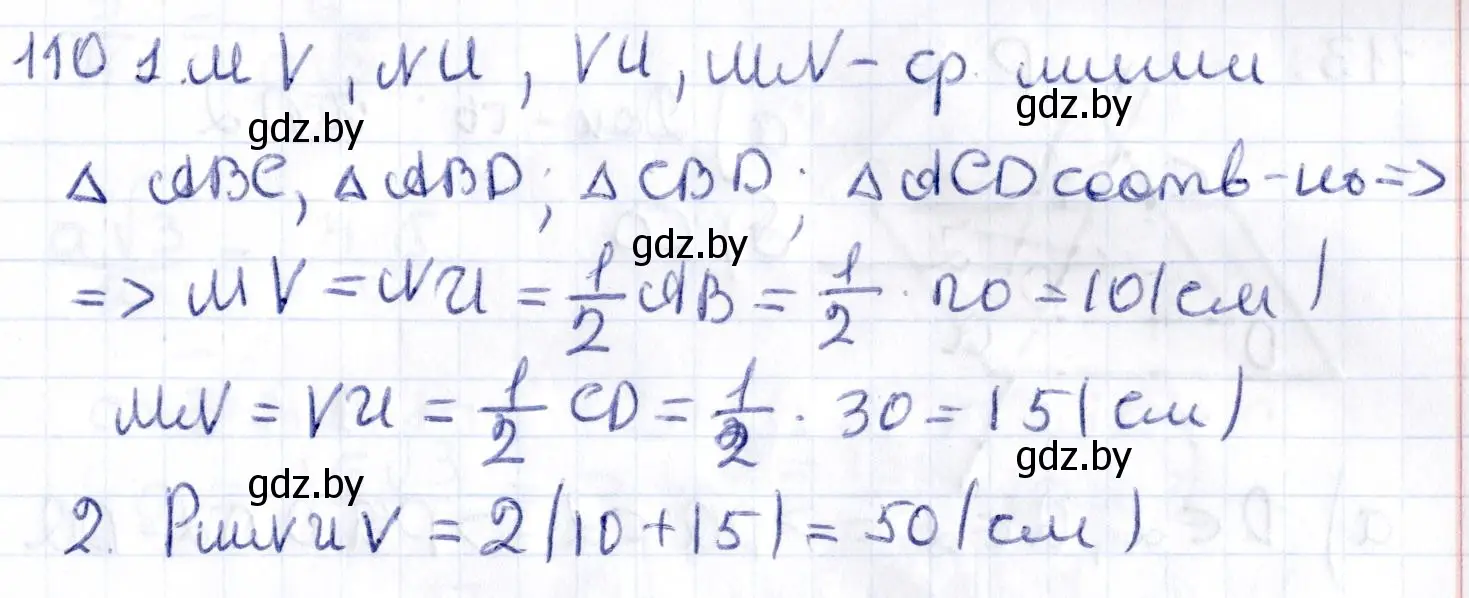 110 1. MV, NU, VU, MN - ср. линии
gdz.by
△ ABC, △ ABD; △ CBD; △ ACD соотв-но =>
gdz.by
=> MV = NU = 1/2 AB = 1/2 · 20 = 10 (см)
MN = VU = 1/2 CD = 1/2 · 30 = 15 (см)
gdz.by
gdz.by
2. PMNUV = 2(10 + 15) = 50 (см)